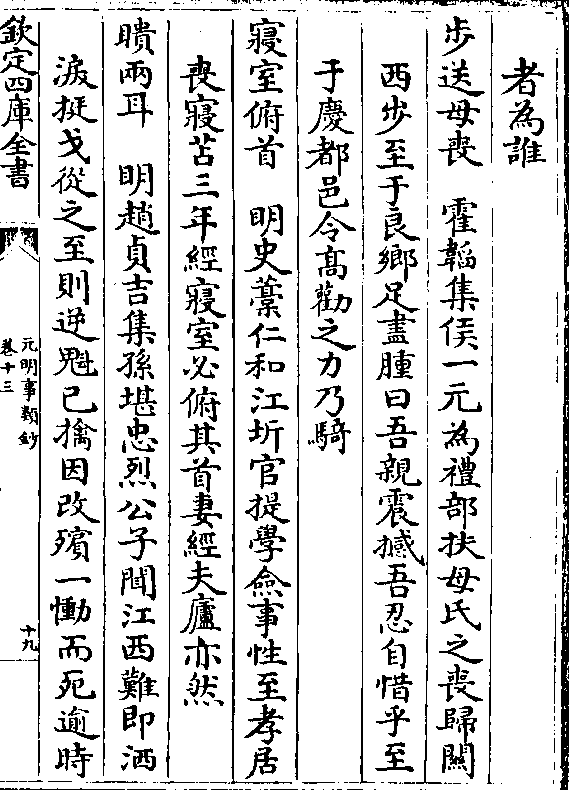 者為誰
步送母喪　霍韜集侯一元為禮部扶母氏之喪歸關
西步至于良鄉足盡腫曰吾親震撼吾忍自惜乎至
于慶都邑令髙勸之力乃騎
寢室俯首　明史藁仁和江圻官提學僉事性至孝居
喪寢苫三年經寢室必俯其首妻經夫廬亦然
聵兩耳　明趙貞吉集孫堪忠烈公子聞江西難即洒
淚挺戈從之至則逆魁已擒因改殯一慟而死逾時
欽定四庫全書
元明事類鈔
卷十三
十九